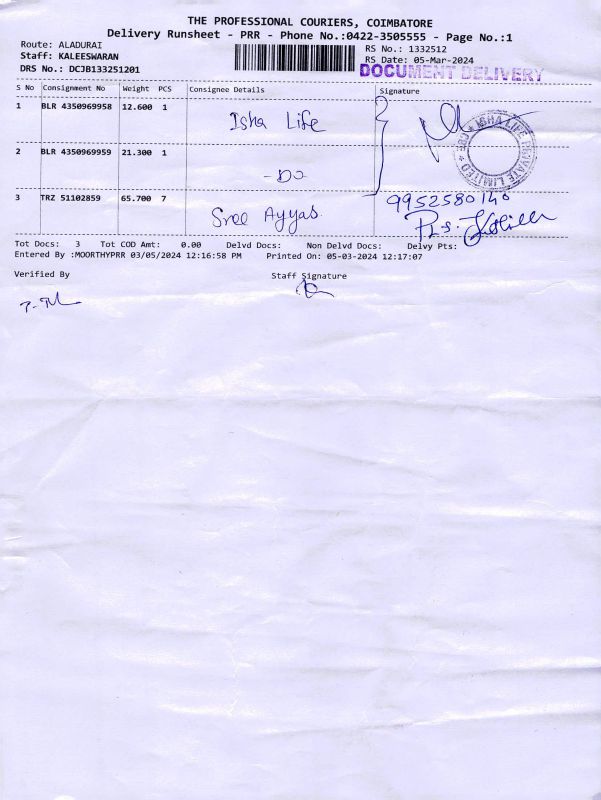 THE PROFESSIONAL COURIERS, COIMBATORE
Delivery Runsheet - PRR - Phone No.:0422-3505555 - Page No.:1
Route: ALADURAI
Staff: KALEESWARAN
DRS No.: DCJB133251201
RS No.: 1332512
RS Date: 05-Mar-2024
DOCUMENT DELIVERY
S No Consignment No Weight PCS Consignee Details Signature
1 BLR 4350969958 12.600 1 Isha Life
ISHA LIFE PRIVATE LIMITED * CBE *
2 BLR 4350969959 21.300 1 - DO
3 TRZ 51102859 65.700 7 Sree Ayyas 9952580140
Tot Docs: 3 Tot COD Amt: 0.00 Delvd Docs: Non Delvd Docs: Delvy Pts:
Entered By :MOORTHYPRR 03/05/2024 12:16:58 PM Printed On: 05-03-2024 12:17:07
Verified By Staff Signature